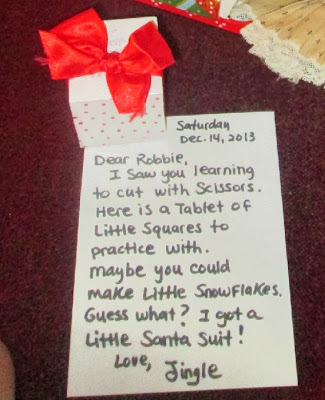 Saturday
Dec. 14, 2013
Dear Robbie,
I saw you learning
to cut with Scissors.
Here is a Tablet of
Little Squares to
practice with.
maybe you could
make Little Snowflakes.
Guess what? I got a
Little Santa Suit!
Love, Jingle